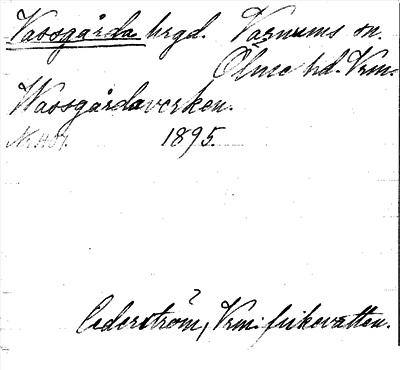 Vassgårda hrgd. Varnums sn.
Ölme hd. Vrm.
Wassgårdaverken.
1895.
Cederström, Vrm: fiskevatten.